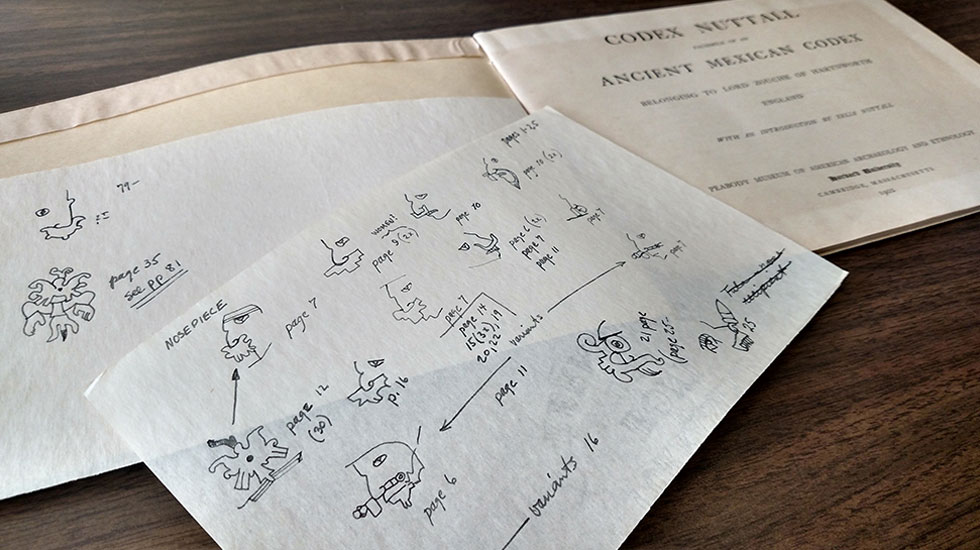 CODEX NUTTALL
FACSIMILE OF AN
ANCIENT MEXICAN CODEX
BELONGING TO LORD ZOUCHE OF HARYNWORTH
ENGLAND
WITH AN INTRODUCTION BY ZELIA NUTTALL
PEABODY MUSEUM OF AMERICAN ARCHAEOLOGY AND ETHNOLOGY
Harvard University
CAMBRIDGE, MASSACHUSETTS
1902
79-
page 35
see pp. 81
pages 1-25
page 10 (2x)
WOMEN!
page 9 (2x)
page 10
page 6 (2x)
page 9
page 11
page 7
page 7
NOSEPIECE
page 7
page 7
page 14
15 (3x), 19
20, 22
variants
page 11
page 12
(30)
p. 16
page 6
21 page
page 25-
25
variants 16